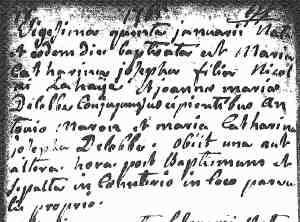 Vigesima quinta januarii Nata
et eodem die baptisata est Maria
Catharina josepha filia Nicol
ai Lahaye et joanna maria
Delobbe Conjugum suscipientibus An
tonio maroie et maria Catharina
josepha Delobbe: obiit una aut
altera hora post baptismum et
sepulta in Cæmeterio in loco parvu
lis proprio.